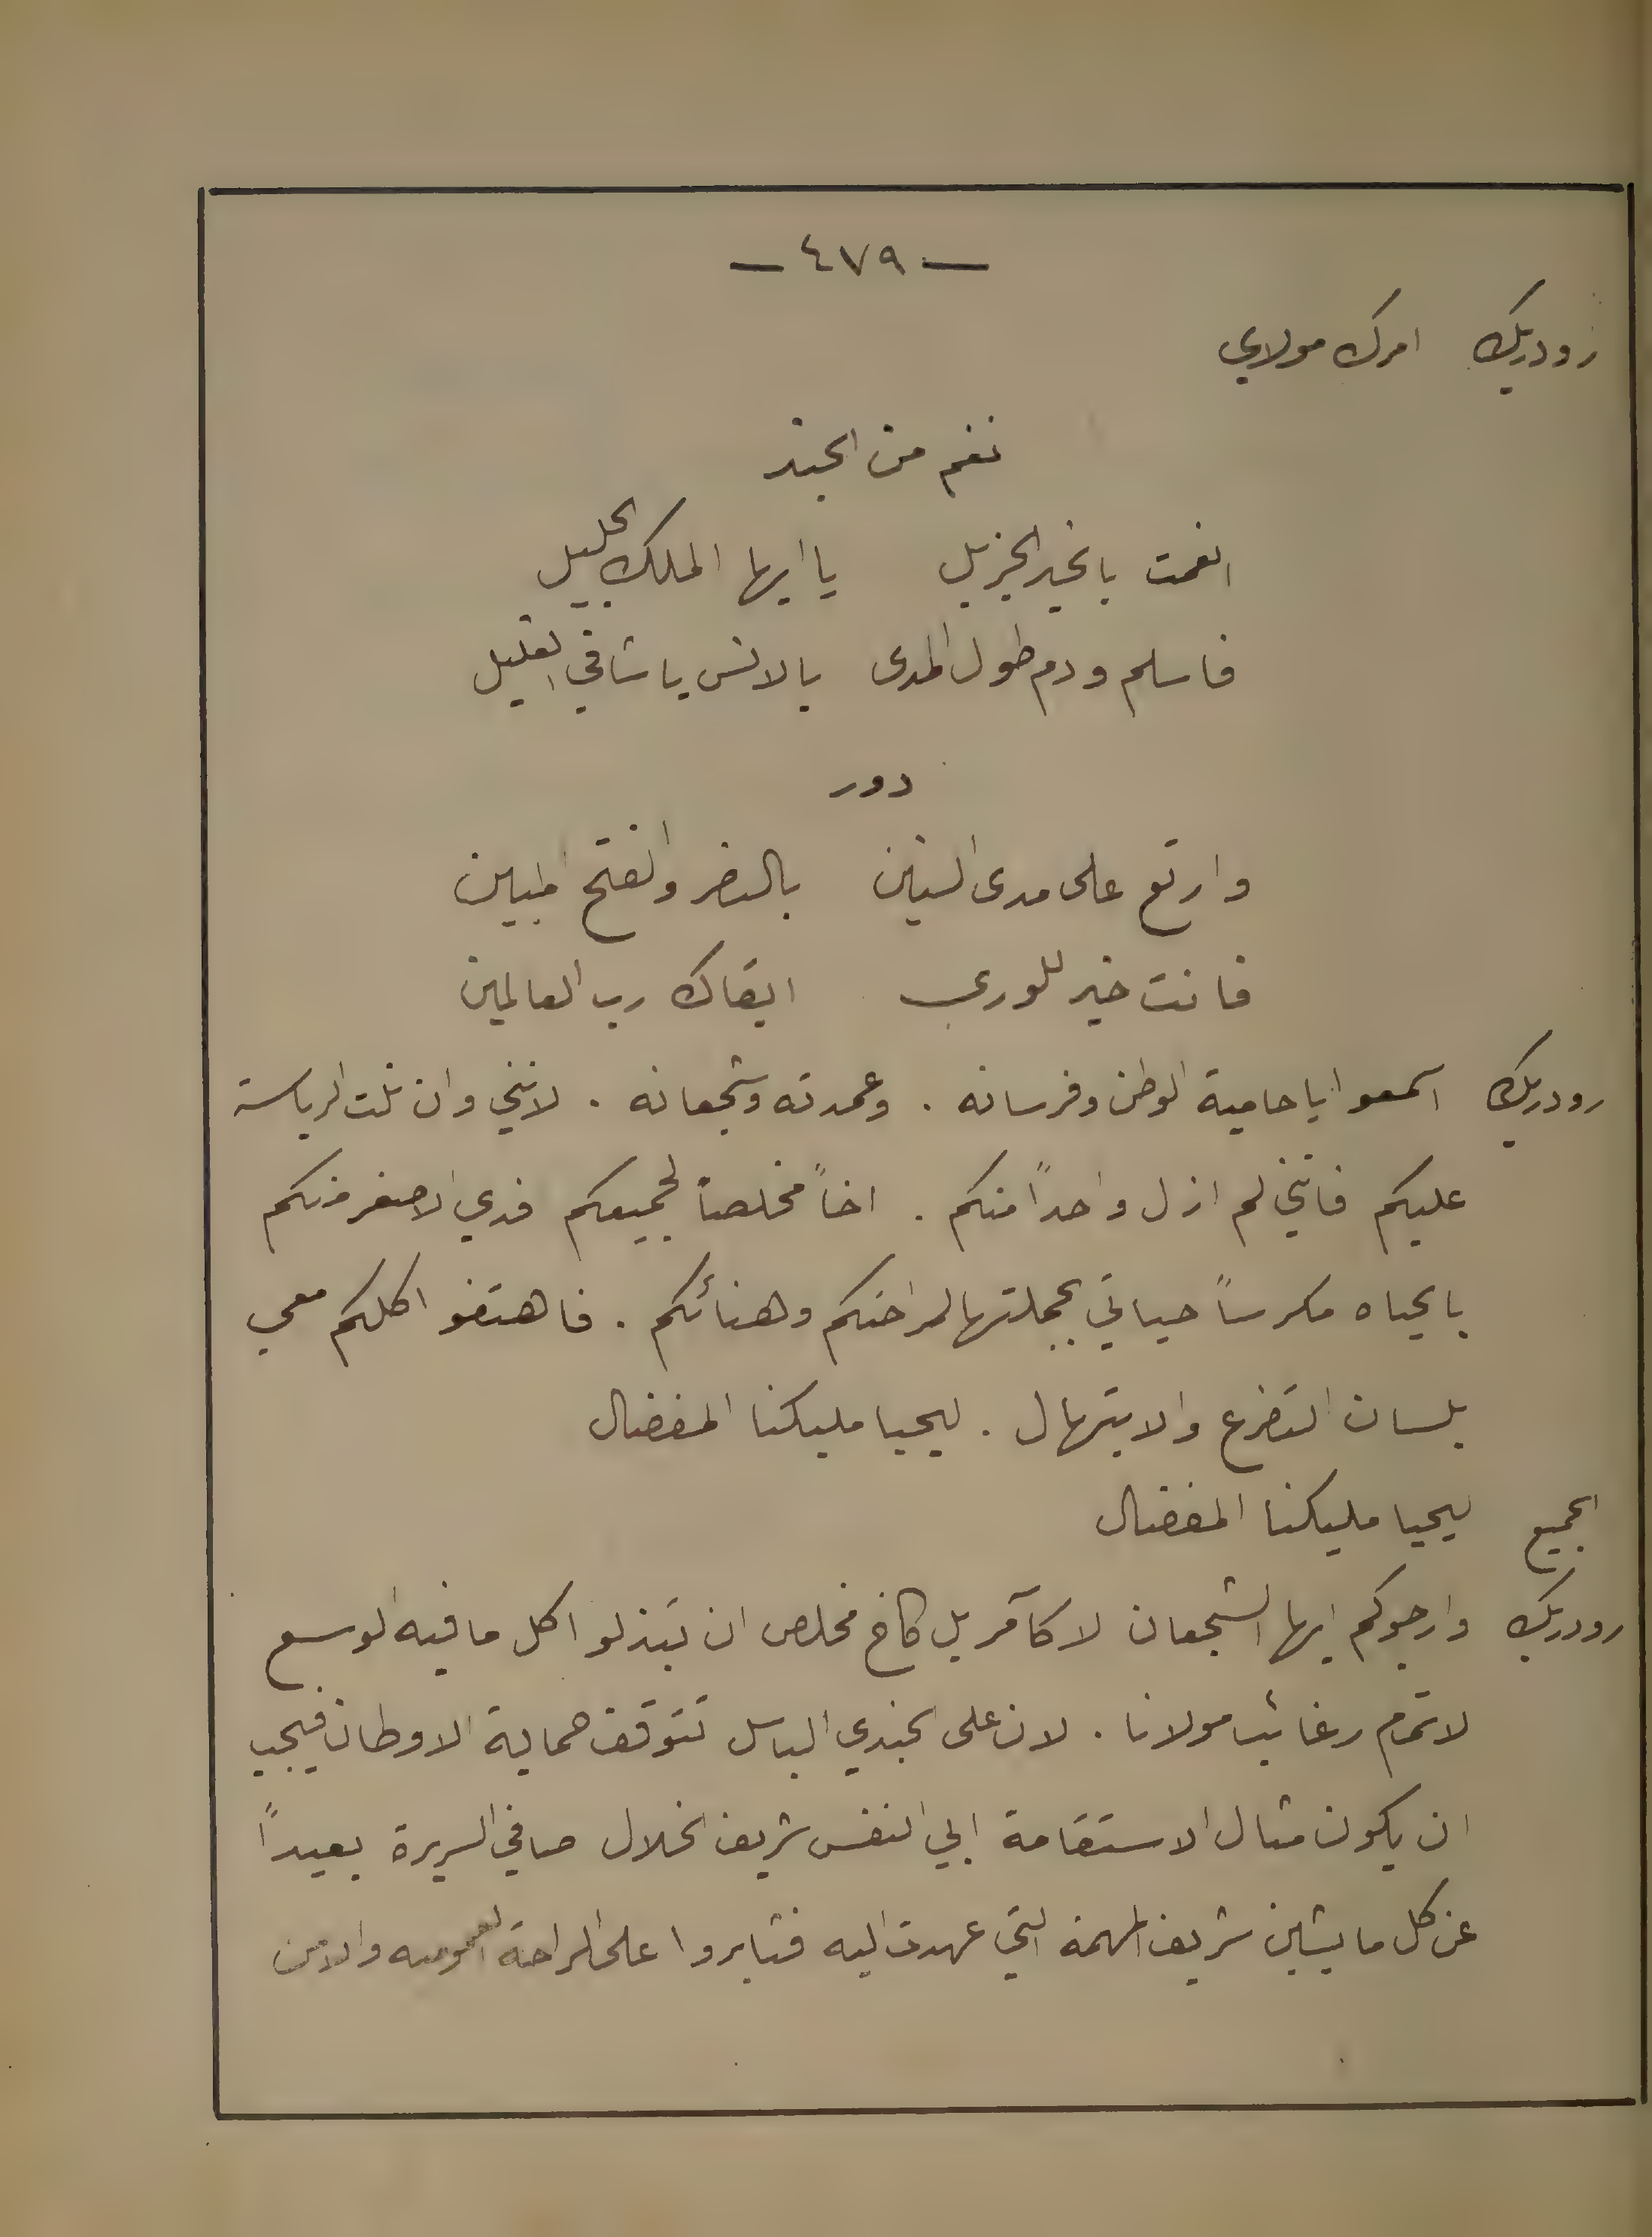 — ٤٧٩ —
رودريك امرك مولاي
نغم من الجند
انعمت بالخير الجزيل يا ايها الملك الجليل
فاسلم ودم طول المدى بالانس يا شافي الغليل
دور
وارتع على مدى السنين بالنصر والفتح المبين
فانت خير للورى ابقاك رب العالمين
رودريك اسمعوا يا حامية الوطن وفرسانه . وعمدته وشجعانه . لانني وان نلت الرياسة
عليكم فانني لم ازل واحداً منكم . اخاً مخلصاً لجميعكم فدي الاصغر منكم
بالحياه مكرساً حياتي بجملتها لراحتكم وهنائكم . فاهتفوا كلكم معي
بلسان التضرع والابتهال . ليحيا مليكنا المفضال
الجميع ليحيا مليكنا المفضال
رودريك وارجوكم ايها الشجعان لا كآمر بل كاخ مخلص ان تبذلوا كل ما فيه الوسع
لاتمام رغائب مولانا . لان على الجندي الباسل تتوقف حماية الاوطان فيجب
ان يكون مثال الاستقامة ابي النفس شريف الخلال صافي السريرة بعيداً
عن كل ما يشين شريف المهمة التي عهدت اليه فثابروا على الراحة العموميه والامن